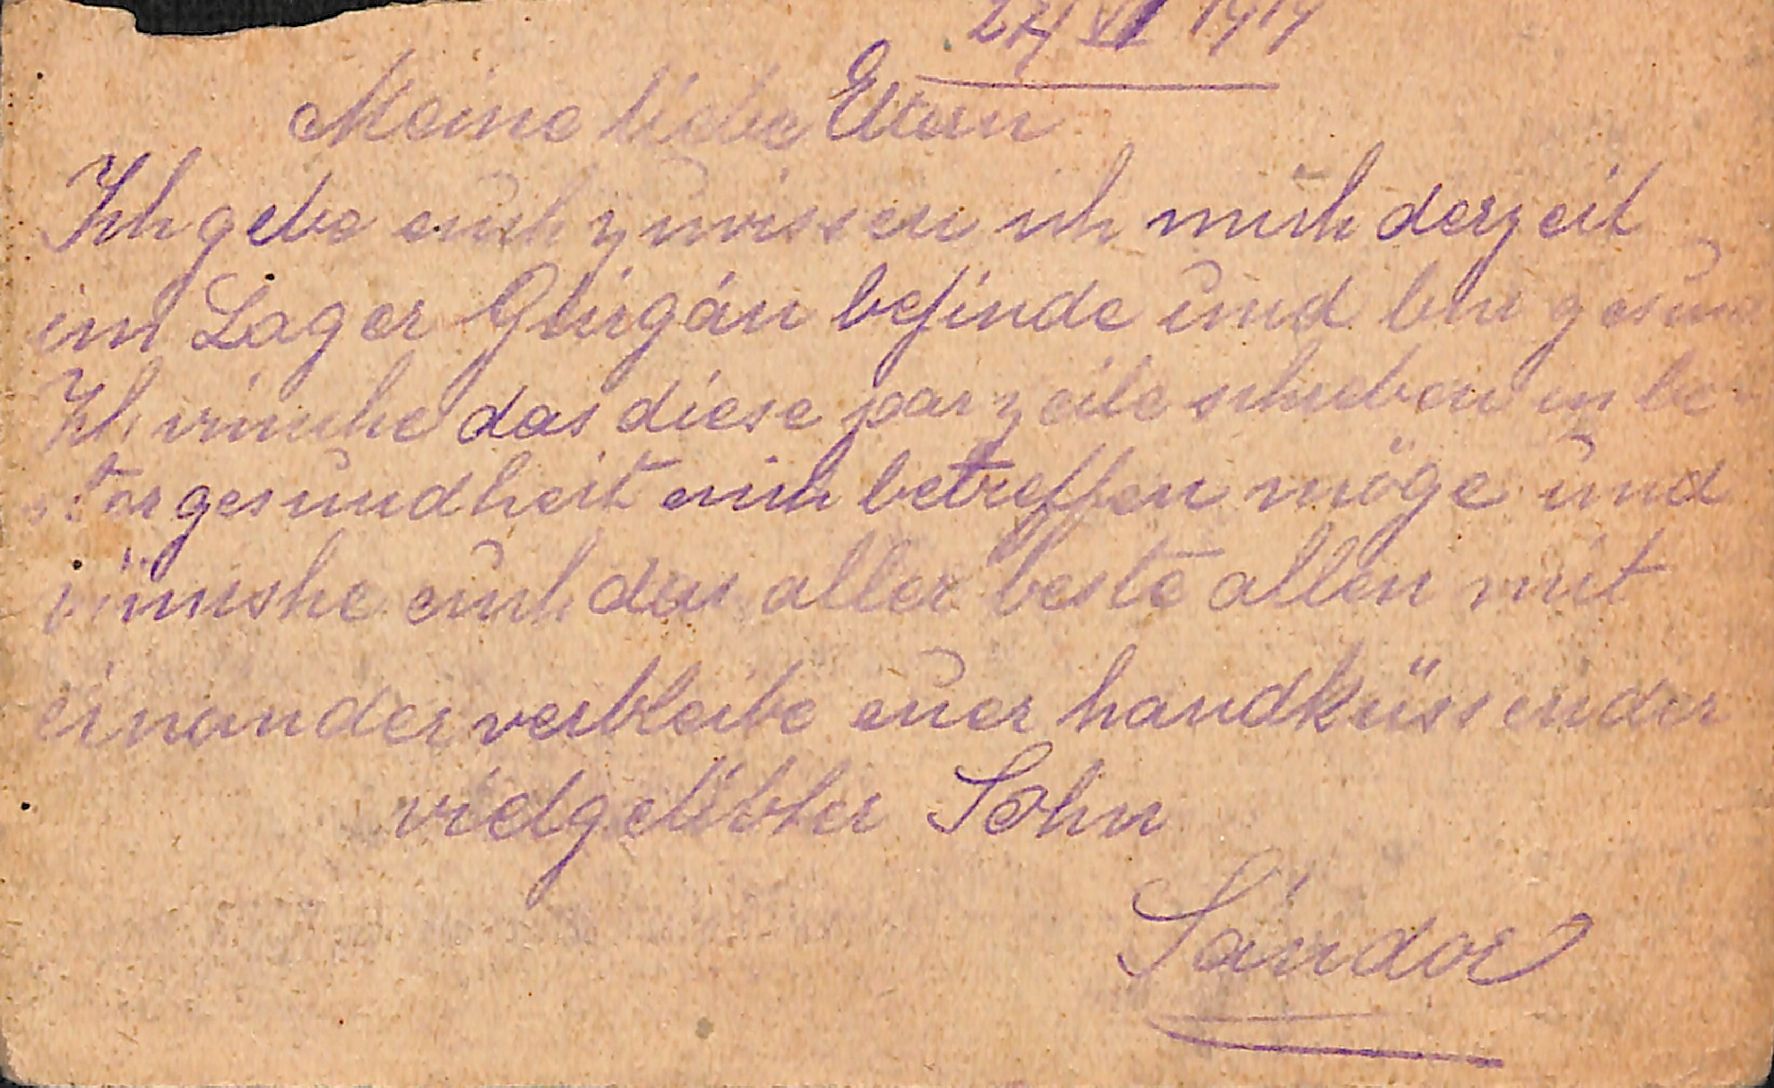 27/VI 1919
Meine liebe Eltern
Ich gebe euch zuwissen ich mich derzeit
im Lager befinde und bin gesund
Ich das diese par zeile schreben in be-
ster gesundheit euch betreffen möge und
wünshe euch das aller beste allen mit
einander verbleibe euer handküssender
vielgelibter Sohn
Sándor